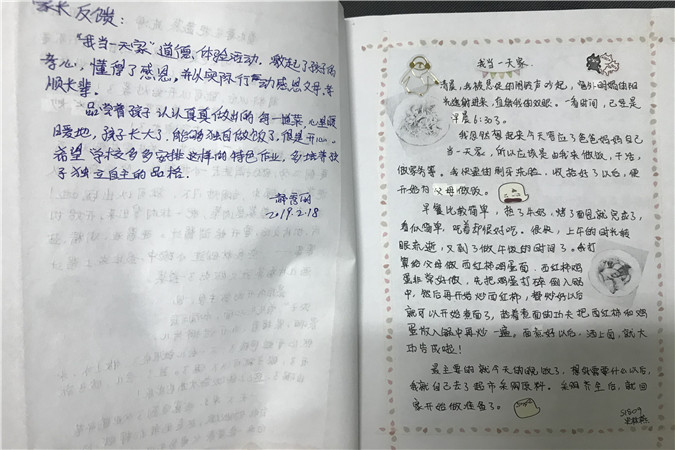 家长反馈：
"我当一天家"道德体验活动，激起了孩子的
孝心，懂得了感恩，并以实际行动感恩父母、孝
顺长辈。
品尝着孩子认认真真做出的每一道菜，心里暖
暖地，孩子长大了，能够独自做饭了，很是开心。
希望学校多多安排这样的特色作业，多培养孩
子独立自主的品格。
2019.2.18
我当一天家
清晨，我被急促的闹铃声吵起，窗外明媚的阳
光透射进来，直射我的双眼。一看时间，已经是
早晨6:30了。
我忽然想起来今天答应了爸爸妈妈自己
当一天家，所以应该是由我来做饭，干活，
做家务等。我快速由刷牙洗脸，收拾好了以后，便
开始为父母做饭。
早餐比较简单，热了牛奶，烤了面包就完成了，
看似简单，吃着却很好吃。很快，上午的时光转
眼流逝，又到了做午饭的时间了。我打
算给父母做西红柿鸡蛋面，西红柿鸡
蛋非常好做，先把鸡蛋打碎倒入锅
中，然后再开始炒西红柿，炒好以后
就可以开始煮面了，趁着煮面的功夫把西红柿和鸡
蛋放入锅中再炒一遍。面煮好以后，浇上卤，就大
功告成啦！
最主要的就今天的晚饭了，想好需要什么以后，
我就自己去了超市采购原料。采购齐全后，就回
家开始做准备了。